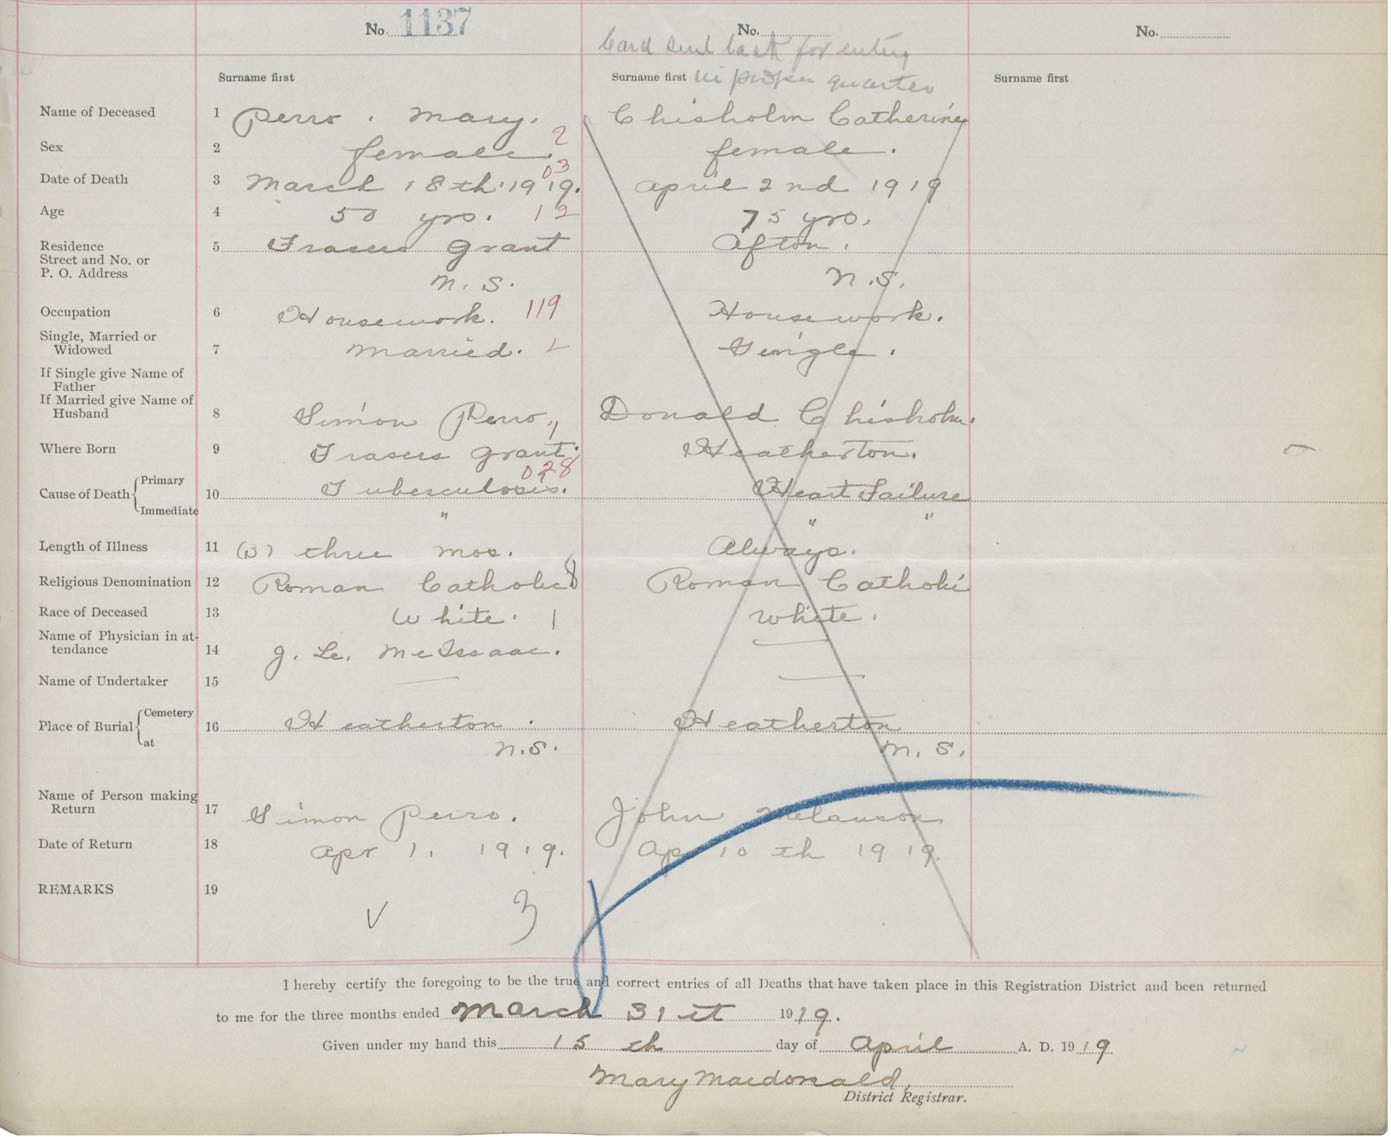 No. 1137 No. No.
Card sent back for entry
Surname first Surname first in proper quarter Surname first
Name of Deceased 1 Perro. Mary. Chisholm Catherine
Sex 2 female. 2 female.
Date of Death 3 March 18th. 1919. 03 April 2nd 1919
Age 4 50 yrs. 12 75 yrs.
Residence 5 Frasers Grant Afton.
Street and No. or
P. O. Address N. S. N. S.
Occupation 6 Housework. 119 Housework.
Single, Married or
Widowed 7 Married. Single.
If Single give Name of
Father
If Married give Name of
Husband 8 Simon Perro, Donald Chisholm.
Where Born 9 Frasers Grant. 1 Heatherton.
Cause of Death Primary 10 Tuberculosis. 028 Heart Failure
Immediate " " "
Length of Illness 11 (3) three mos. Always.
Religious Denomination 12 Roman Catholic 8 Roman Catholi
Race of Deceased 13 White. 1 White.
Name of Physician in at-
tendance 14 J. Le. McIsaac.
Name of Undertaker 15
Place of Burial Cemetery 16 Heatherton. Heatherton
at N.S. N. S.
Name of Person making
Return 17 Simon Perro. John Melanson
Date of Return 18 Apr 1. 1919. Ap 10th 1919.
REMARKS 19
3
I hereby certify the foregoing to be the true and correct entries of all Deaths that have taken place in this Registration District and been returned
to me for the three months ended March 31st 1919.
Given under my hand this 15th day of April A. D. 1919
Mary Macdonald,
District Registrar.